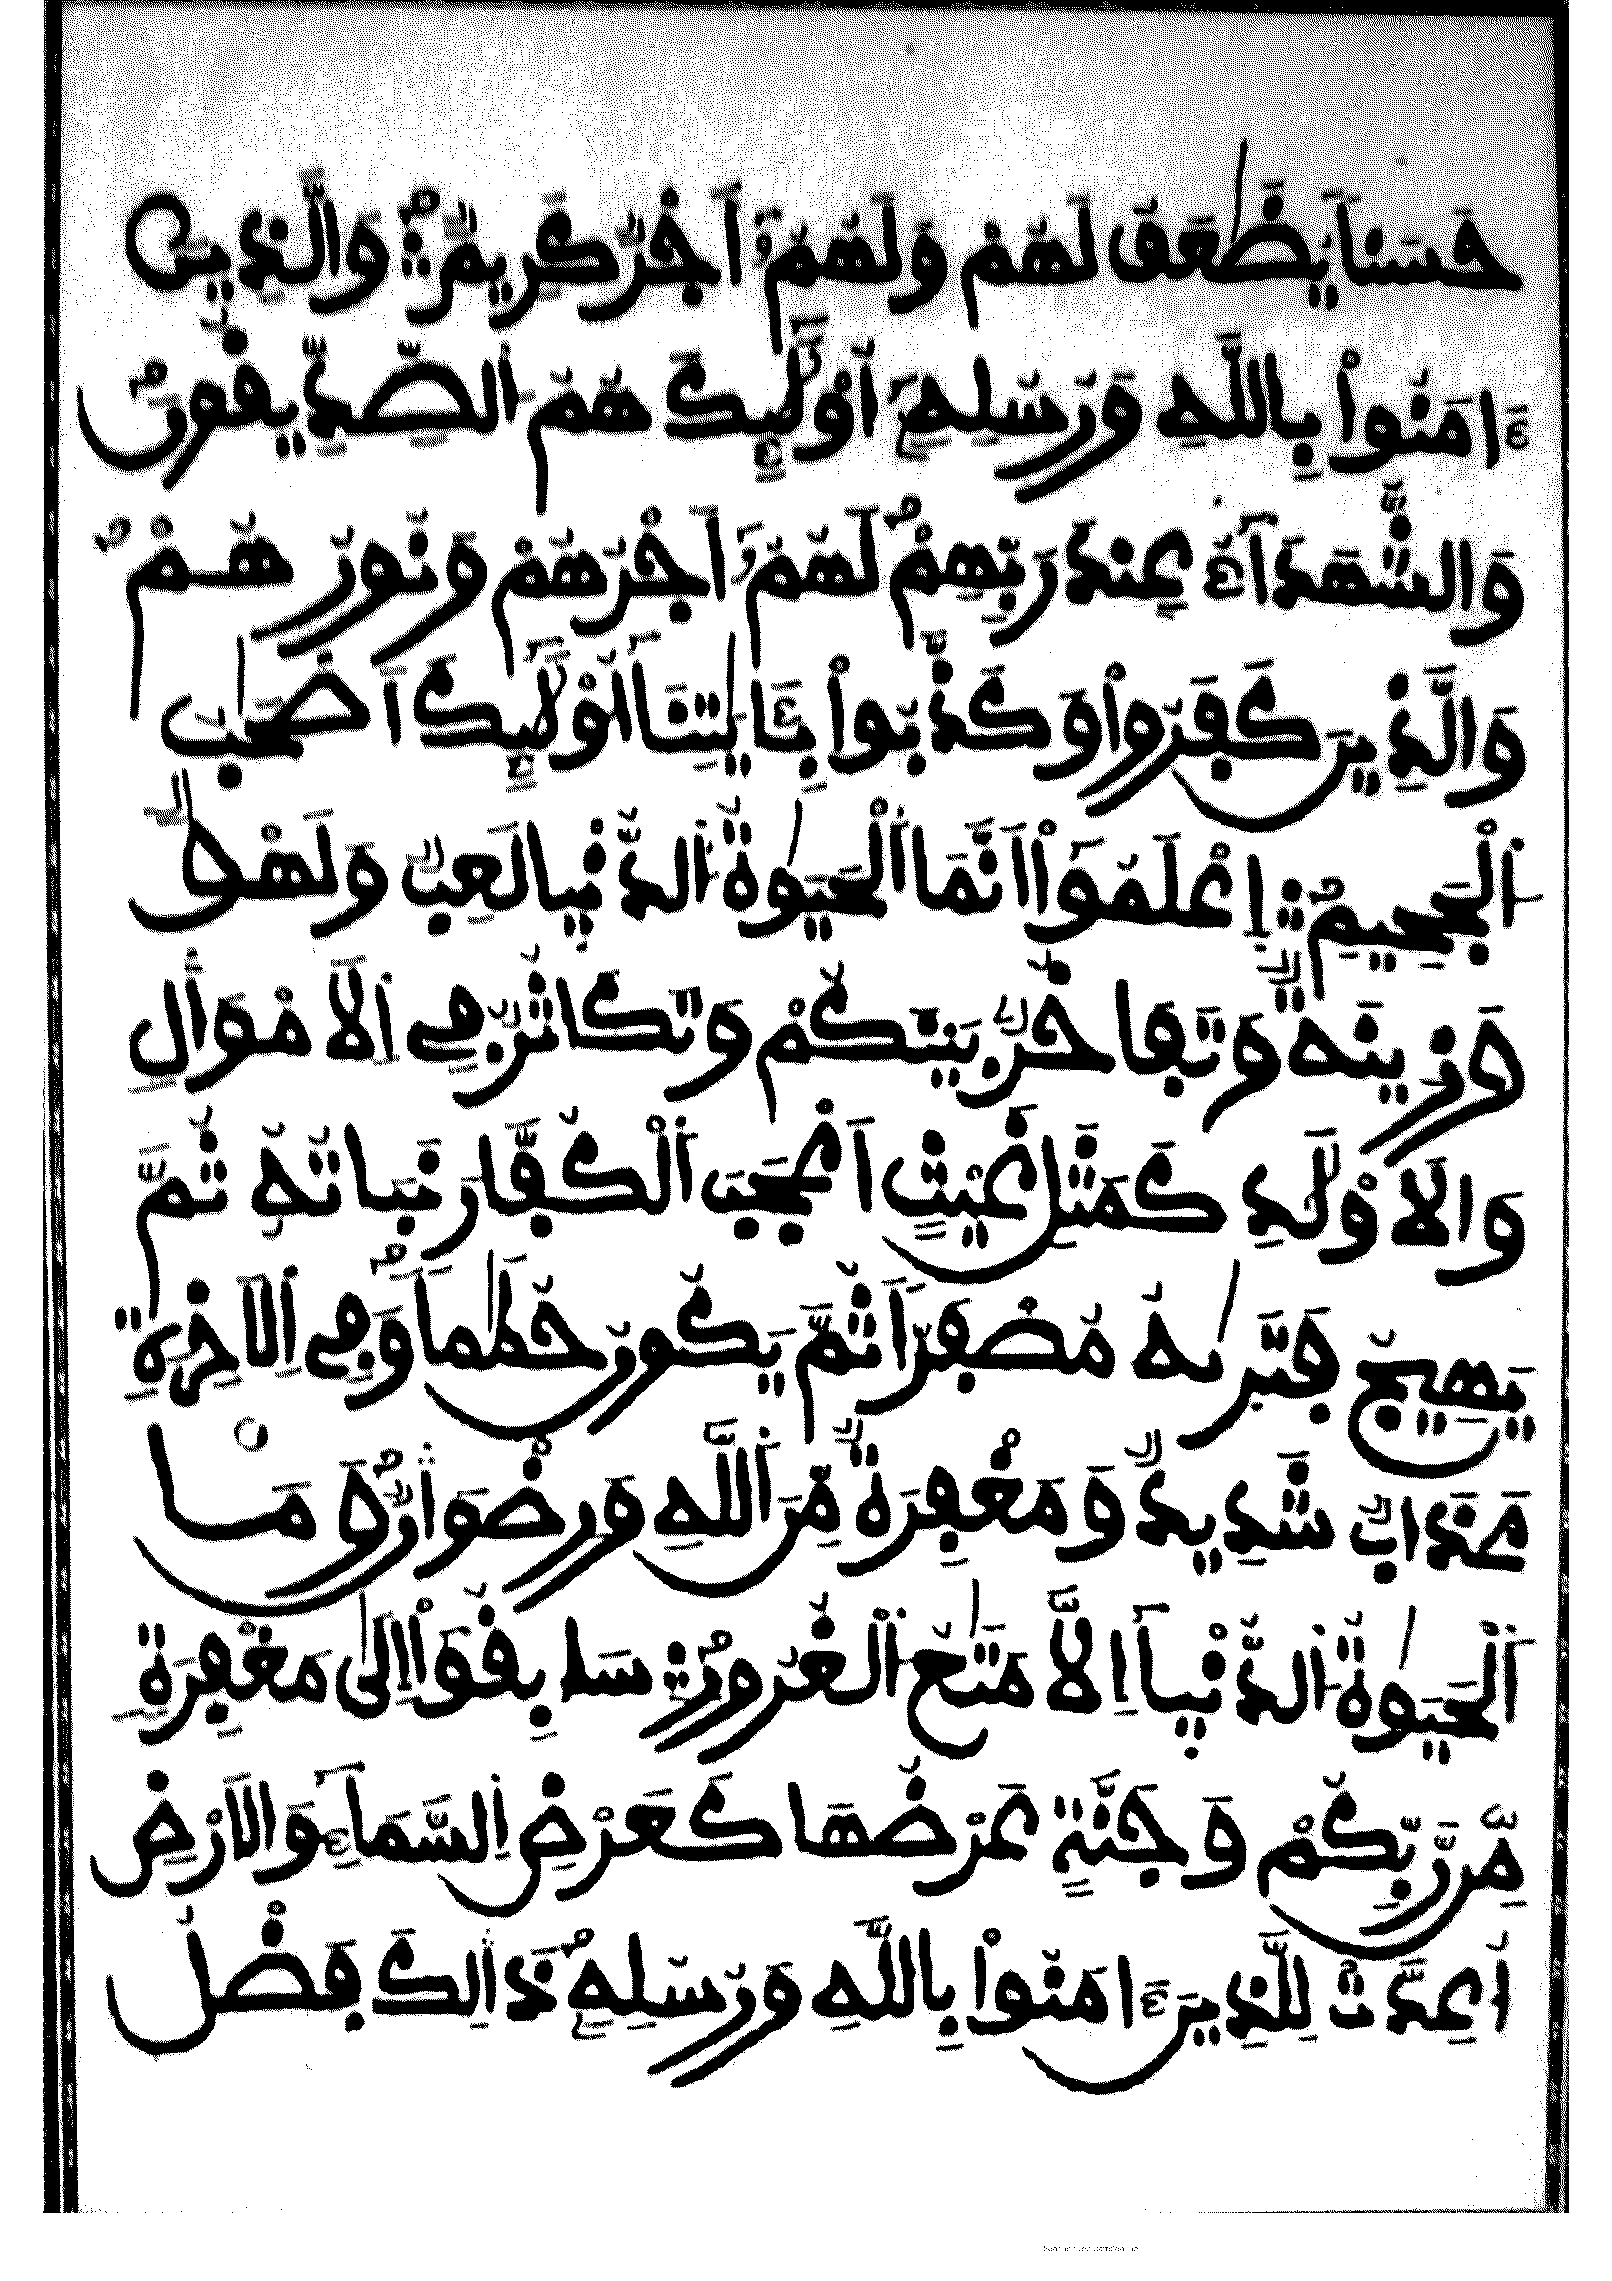 حَسَنًا يُضَٰعَفُ لَهُمْ وَلَهُمُۥٓ أَجْرٌ كَرِيمٌ وَالَّذِينَ
ءَامَنُواْ بِاللَّهِ وَرُسُلِهِۦٓ أُوْلَٰٓئِكَ هُمُ الصِّدِّيقُونَ
وَالشُّهَدَآءُ عِندَ رَبِّهِمْ لَهُمُۥٓ أَجْرُهُمْ وَنُورُهُمْ
وَالَّذِينَ كَفَرُواْ وَكَذَّبُواْ بِـَٔايَٰتِنَا أُوْلَٰٓئِكَ أَصْحَٰبُ
الْجَحِيمِ اِعْلَمُوٓاْ أَنَّمَا الْحَيَوٰةُ الدُّنْيَا لَعِبٌ وَلَهْوٌ
وَزِينَةٌ وَتَفَاخُرٌ بَيْنَكُمْ وَتَكَاثُرٌ فِي الَامْوَالِ
وَالَاوْلَٰدِ كَمَثَلِ غَيْثٍ أَعْجَبَ الْكُفَّارَ نَبَاتُهُۥ ثُمَّ
يَهِيجُ فَتَرَىٰهُ مُصْفَرًّا ثُمَّ يَكُونُ حُطَٰمًا وَفِي الَاخِرَةِ
عَذَابٌ شَدِيدٌ وَمَغْفِرَةٌ مِّنَ اللَّهِ وَرِضْوَانٌ وَمَا
الْحَيَوٰةُ الدُّنْيَآ إِلَّا مَتَٰعُ الْغُرُورِ سَابِقُوٓاْ إِلَىٰ مَغْفِرَةٍ
مِّن رَّبِّكُمْ وَجَنَّةٍ عَرْضُهَا كَعَرْضِ السَّمَآءِ وَالَارْضِ
أُعِدَّتْ لِلَّذِينَ ءَامَنُواْ بِاللَّهِ وَرُسُلِهِۦ ذَالِكَ فَضْلُ